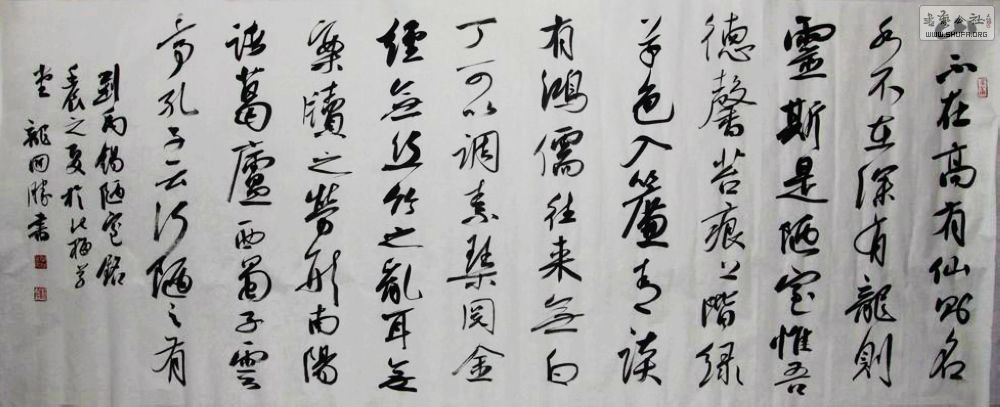 山不在高有仙則名
水不在深有龍則
靈斯是陋室惟吾
德馨苔痕上階緑
草色入簾青談
有鴻儒往来無白
丁可以調素琴閱金
經無丝竹之亂耳無
案牘之勞形南陽
諸葛廬西蜀子雲
亭孔子云何陋之有
劉禹錫陋室銘
壬辰之夏於
堂 龍書
公社
WWW.SHUFA.ORG